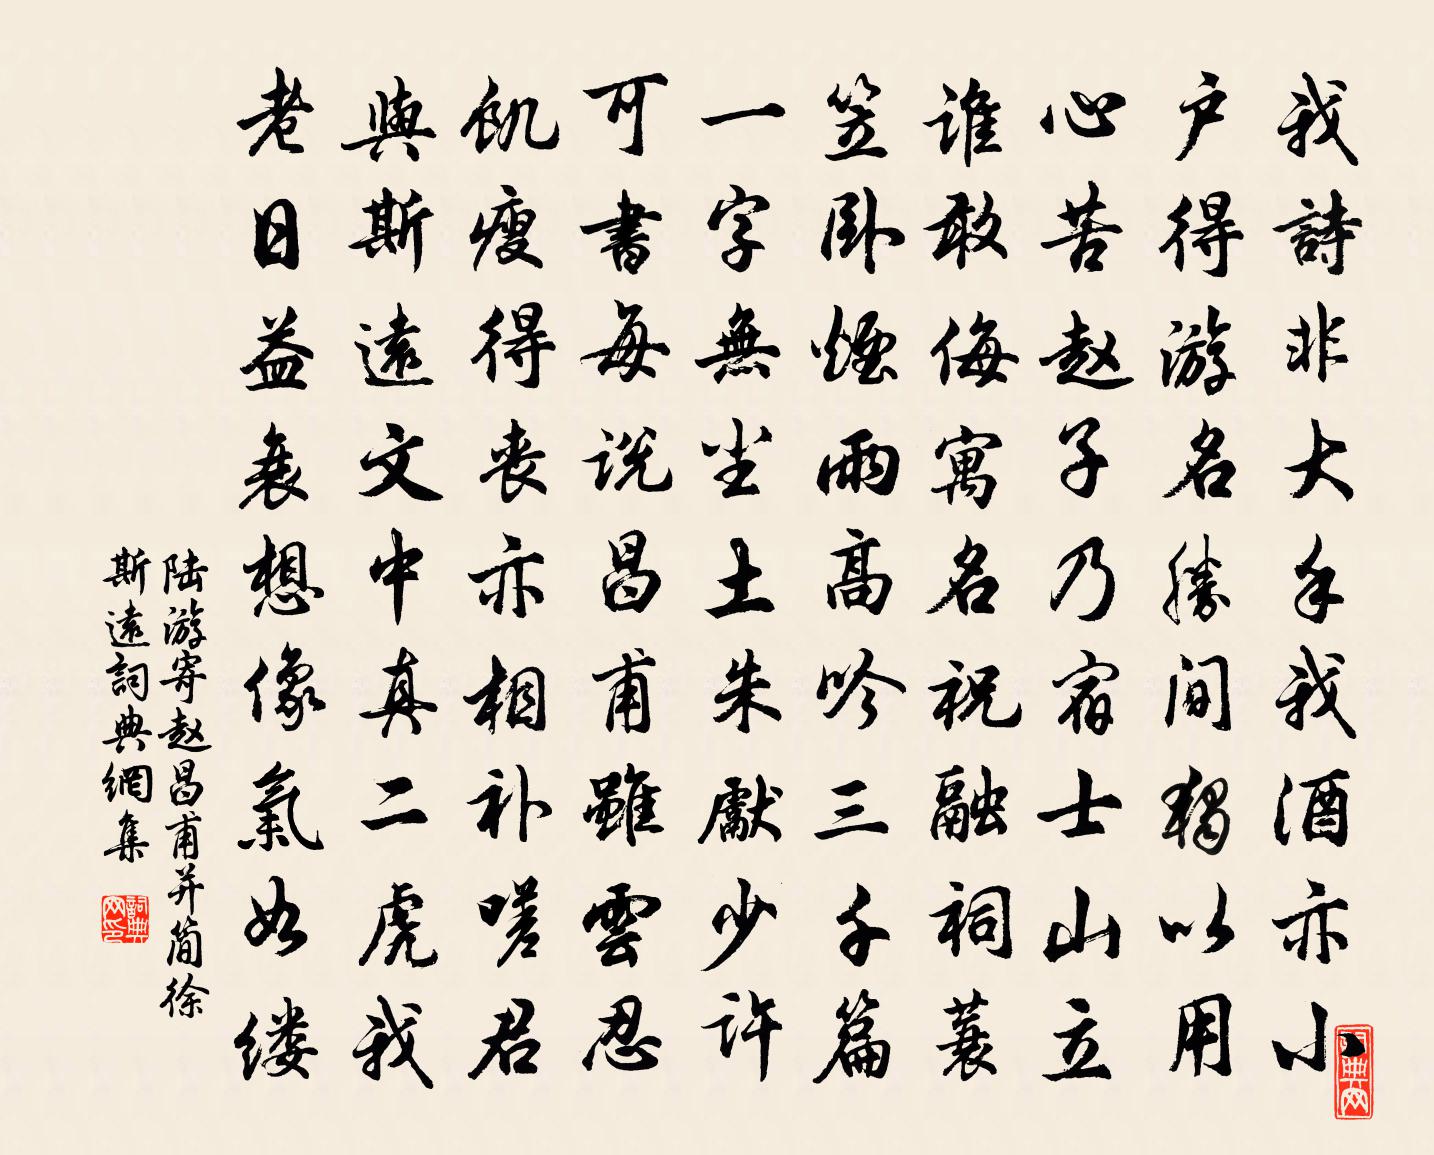 我詩非大手我酒亦小
户得游名勝間獨以用
心苦赵子乃宿士山立
谁敢侮寓名祝融祠蓑
笠卧煙雨高吟三千篇
一字無尘土朱獻少许
可書每说昌甫雖雲忍
飢瘦得丧亦相补嗟君
與斯遠文中真二虎我
老日益衰想像氣如缕
陆游寄赵昌甫并简徐
斯遠詞典網集
詞典网印
詞典网